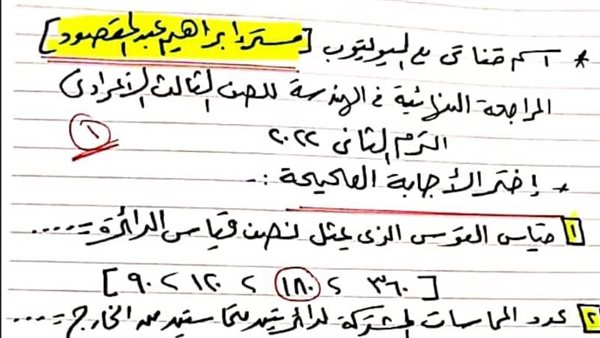 * اسم قناتى على اليوتيوب [مستر إبراهيم عبد المقصود]
المراجعة النهائية فى الهندسة للصف الثالث الإعدادى
الترم الثانى ٢٠٢٢
١
* إختر الأجابة الصحيحة :-
١ قياس القوس الذى يمثل نصف قياس الدائرة = ....
[ ٣٦٠ ، ١٨٠ ، ١٢٠ ، ٩٠ ]
٢ عدد المماسات المشتركة لدائرتين متماستين من الخارج = ....